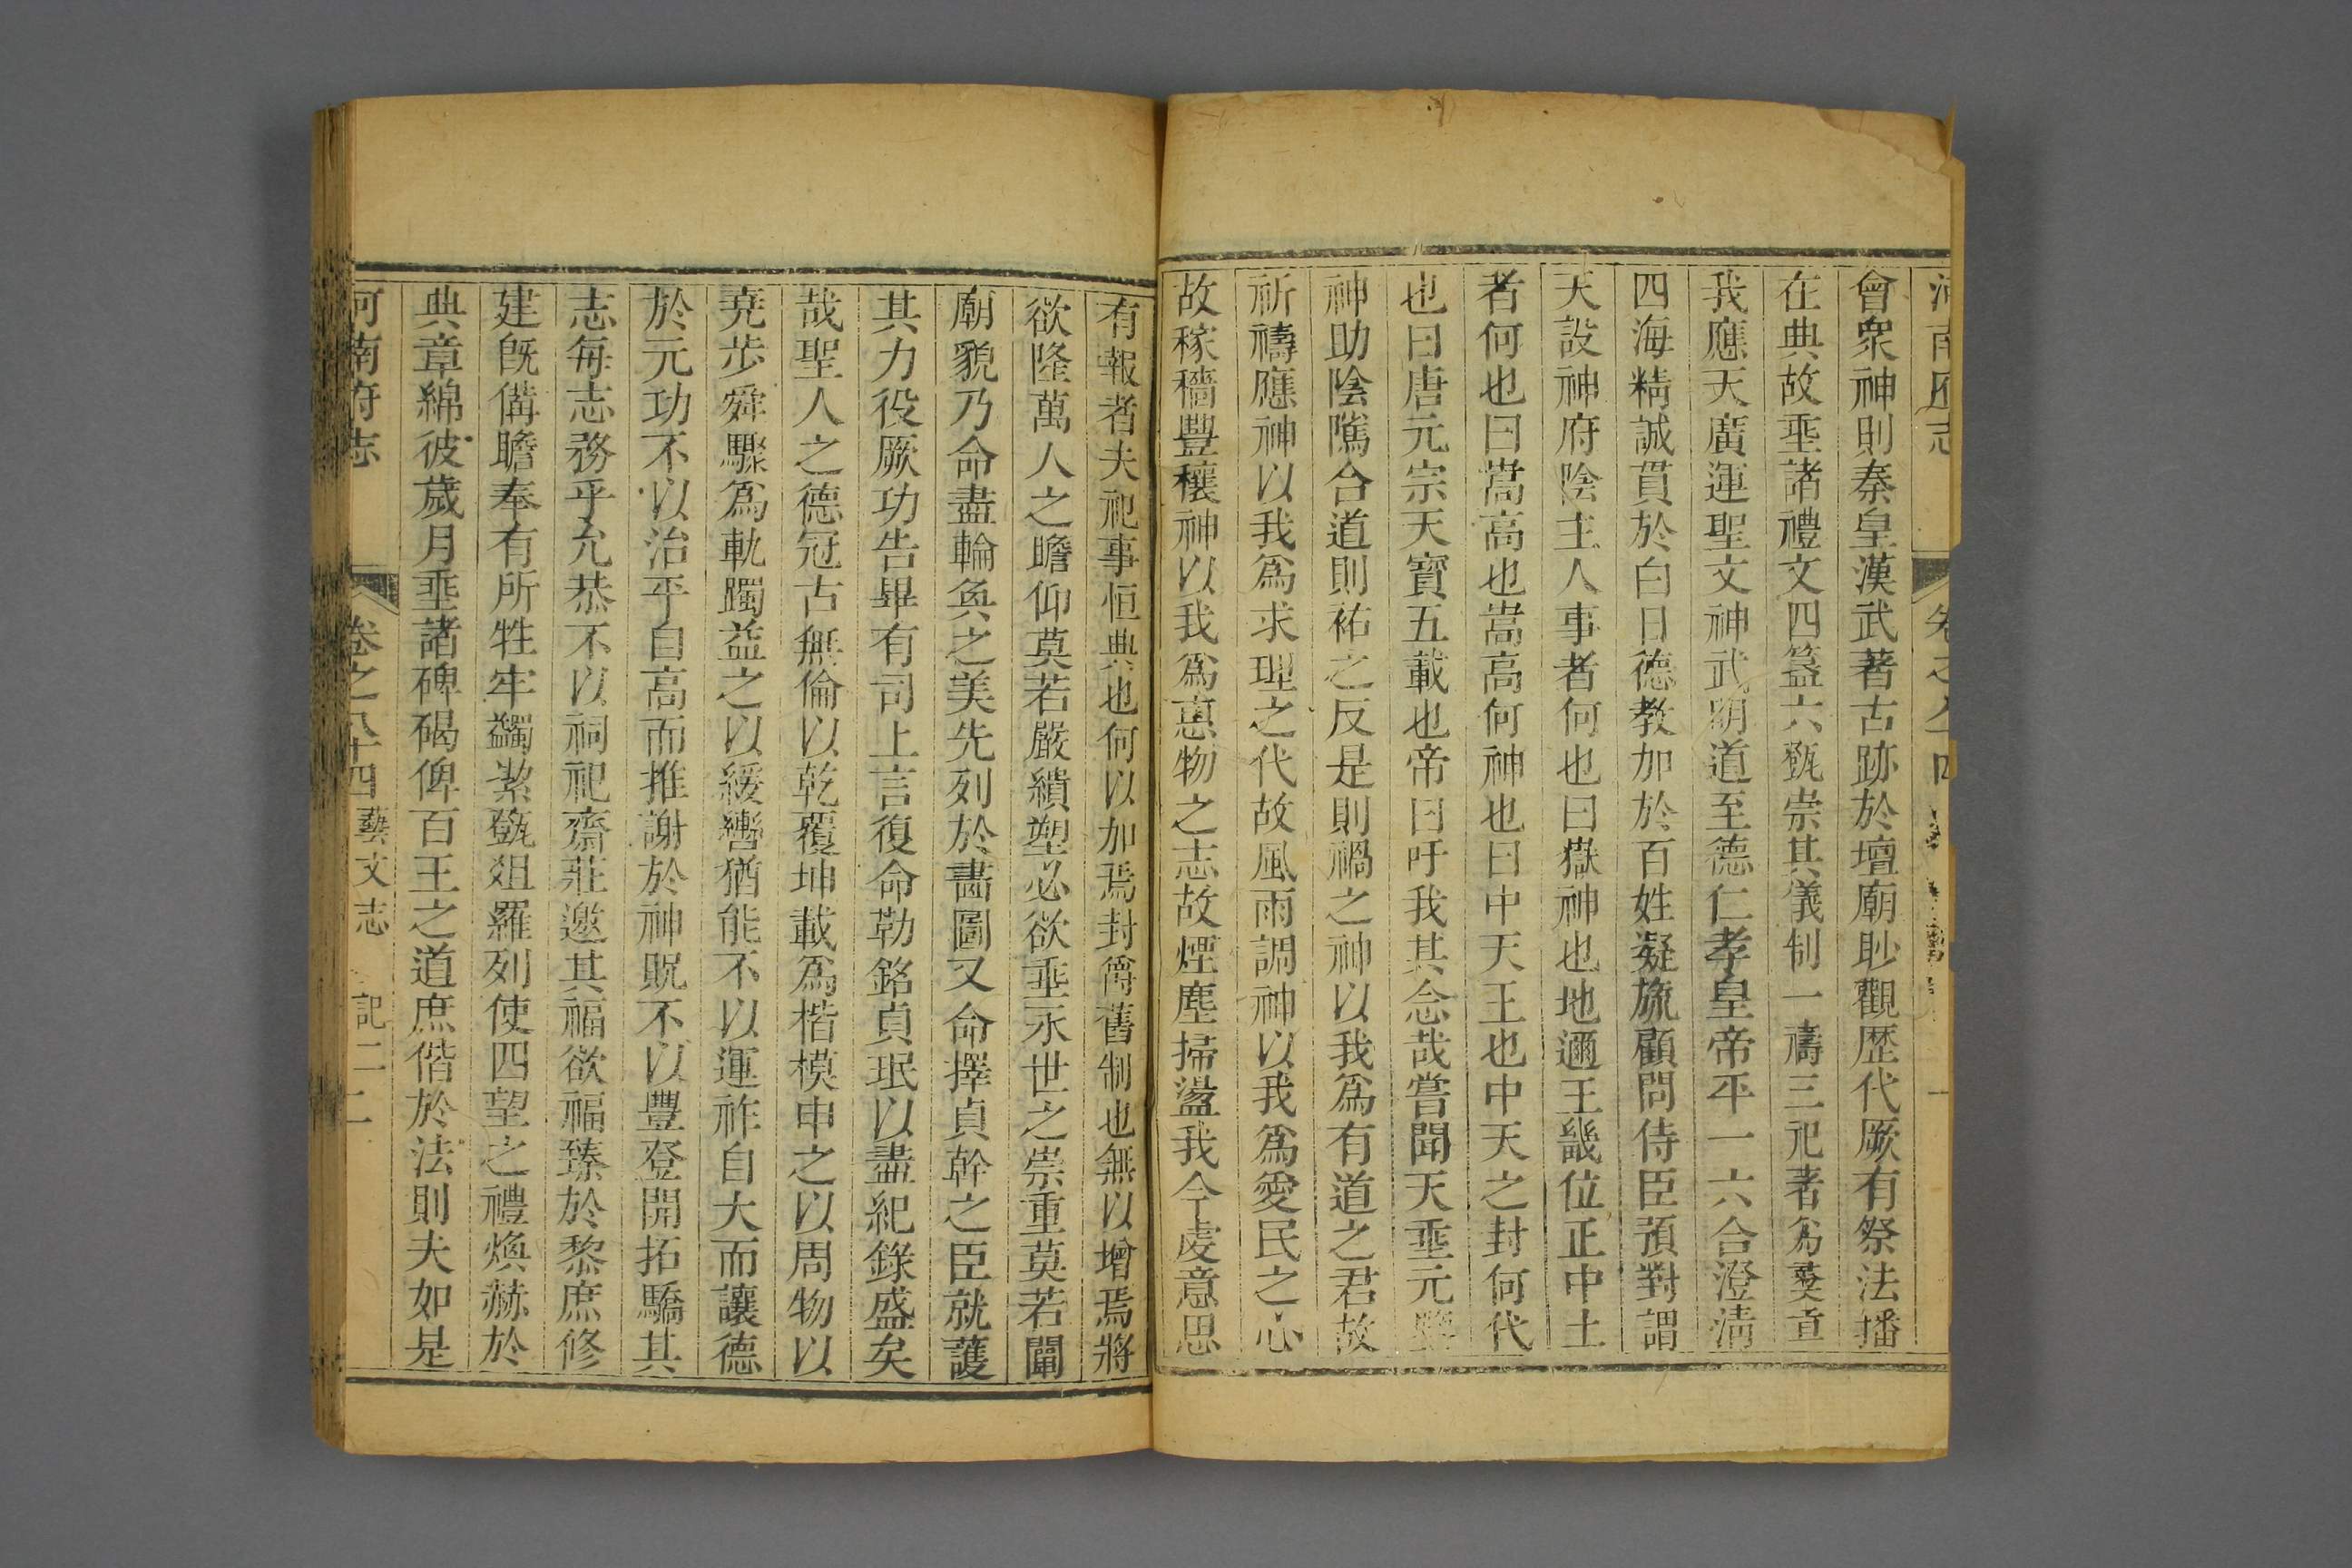 會衆神則秦皇漢武著古跡於壇廟眇觀歷代厥有祭法播
在典故垂諸禮文四簋六甏崇其儀制一禱三祀著爲奠章
我應天廣運聖文神武明道至德仁孝皇帝平一六合澄清
四海精誠貫於白日德教加於百姓凝旒顧問侍臣預對謂
天設神府陰主人事者何也曰嶽神也地邇王畿位正中土
者何也曰嵩高也嵩高何神也曰中天王也中天之封何代
也曰唐元宗天寶五載也帝曰吁我其念哉嘗聞天垂元鑒
神助陰隲合道則祐之反是則禍之神以我爲有道之君故
祈禱應神以我爲求理之代故風雨調神以我爲愛民之心
故稼穡豐穰神以我爲惠物之志故煙塵掃盪我今虔意思
有報者夫祀事恒典也何以加焉封爵舊制也無以增焉將
欲隆萬人之瞻仰莫若嚴繢塑必欲垂永世之崇重莫若闡
廟貌乃命盡輪奐之美先列於畵圖又命擇貞幹之臣就護
其力役厥功告畢有司上言復命勒銘貞珉以盡紀錄盛矣
哉聖人之德冠古無倫以乾覆坤載爲楷模申之以周物以
堯步舜驟爲軌躅益之以緩轡猶能不以運祚自大而讓德
於元功不以治平自高而推謝於神貺不以豐登開拓驕其
志每志務乎允恭不以祠祀齋莊邀其福欲福臻於黎庶修
建旣備瞻奉有所牲牢蠲潔甏俎羅列使四望之禮煥赫於
典章綿彼歲月垂諸碑碣俾百王之道庶偕於法則夫如是
河南府志 卷之八十四 藝文志 記二 二